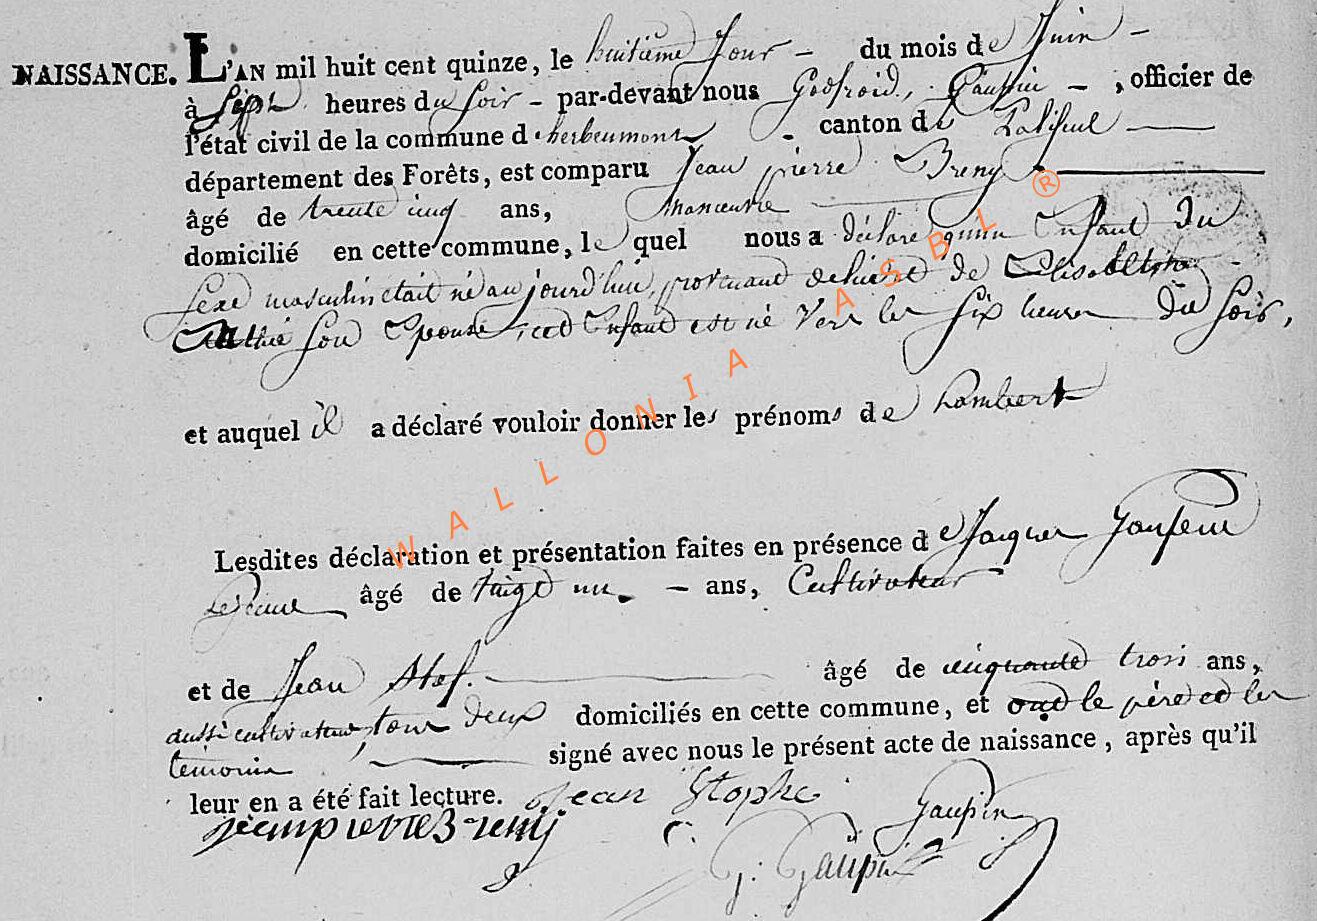 NAISSANCE. L'AN mil huit cent quinze, le huitième Jour – du mois de Juin –
à Sept heures du Soir – par-devant nous Godfroid, Gaupin – , officier de
l'état civil de la commune d'herbeumont – canton de Paliseul
département des Forêts, est comparu Jean pierre Bremy
âgé de trente cinq ans, Manoeuvre
domicilié en cette commune, le quel nous a déclaré qu'un Enfant du
sexe masculin était né aujourd'hui, provenant de lui et de Elisabethe
son Epouse, cet Enfant est né Vers les six heures Du Soir,
et auquel il a déclaré vouloir donner les prénoms de Lambert
Lesdites déclaration et présentation faites en présence de Jacques
Le Jeune âgé de vingt un – ans, Cultivateur
et de Jean Stof. âgé de cinquante trois ans,
aussi cultivateur, tous deux domiciliés en cette commune, et ont le père et les
temoins signé avec nous le présent acte de naissance, après qu'il
leur en a été fait lecture. Jean Stophe Gaupin
jeanpierre Bremy G. Gaupin
WALLONIA ASBL ®